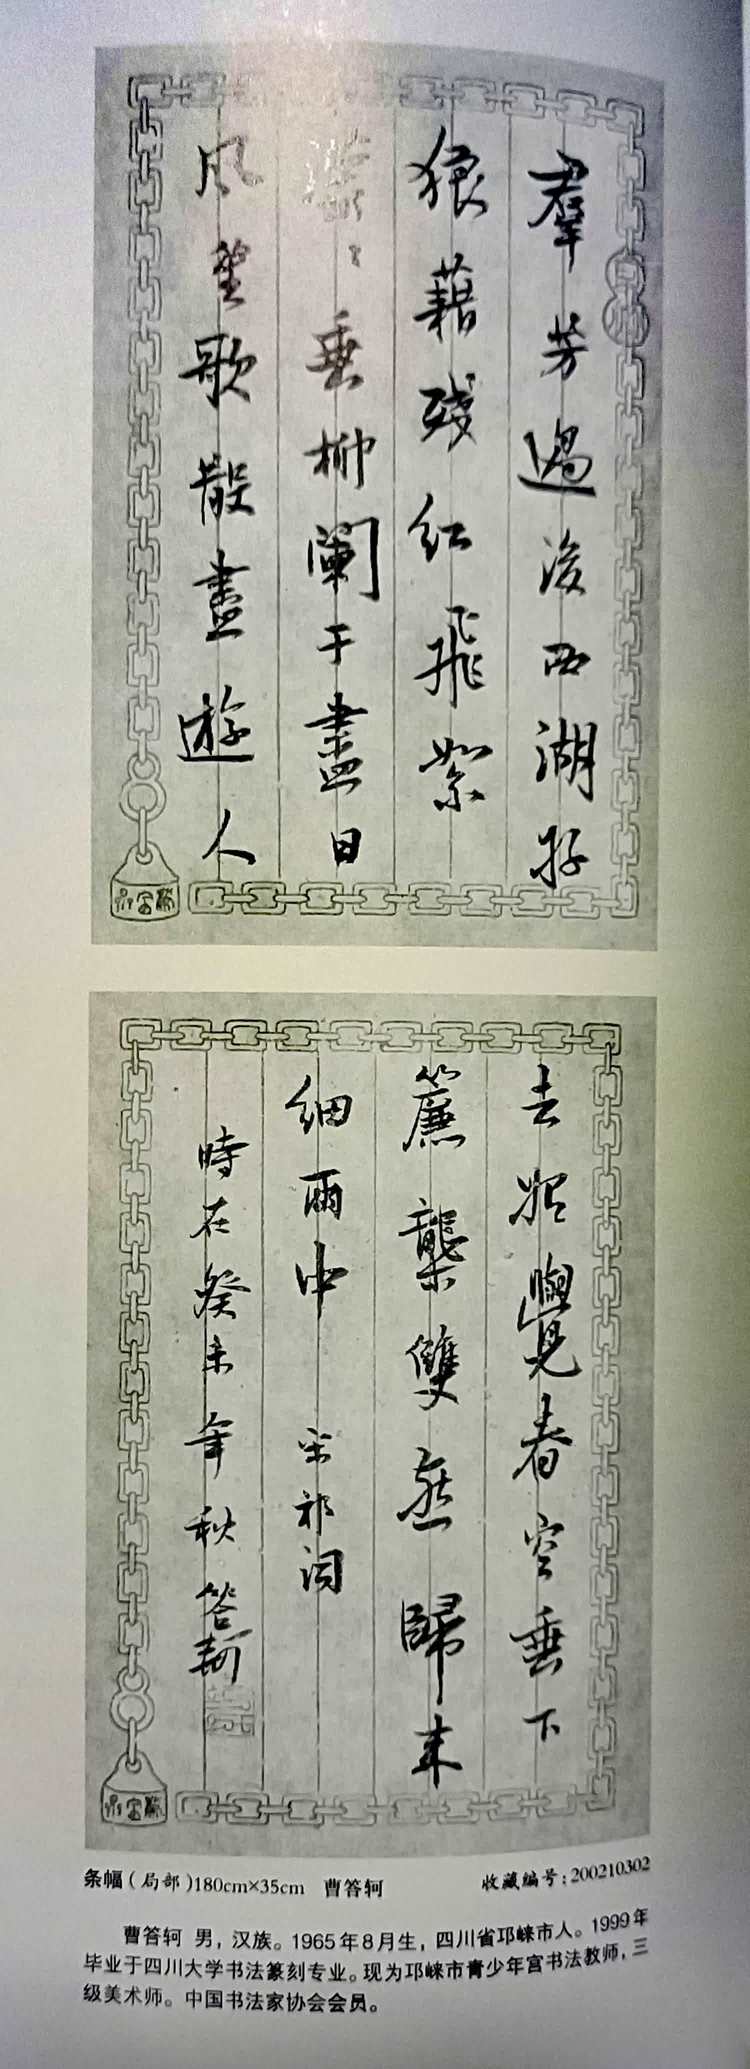 羣芳過後西湖好
狼藉殘紅飛絮
濛〻垂柳闌干盡日
風笙歌散盡遊人
去始覺春空垂下
簾櫳雙燕歸來
細雨中 宋祁詞
時在癸未年秋答軻
条幅(局部)180cm×35cm 曹答轲 收藏编号:200210302
曹答轲 男,汉族。1965年8月生,四川省邛崃市人。1999年
毕业于四川大学书法篆刻专业。现为邛崃市青少年宫书法教师,三
级美术师。中国书法家协会会员。